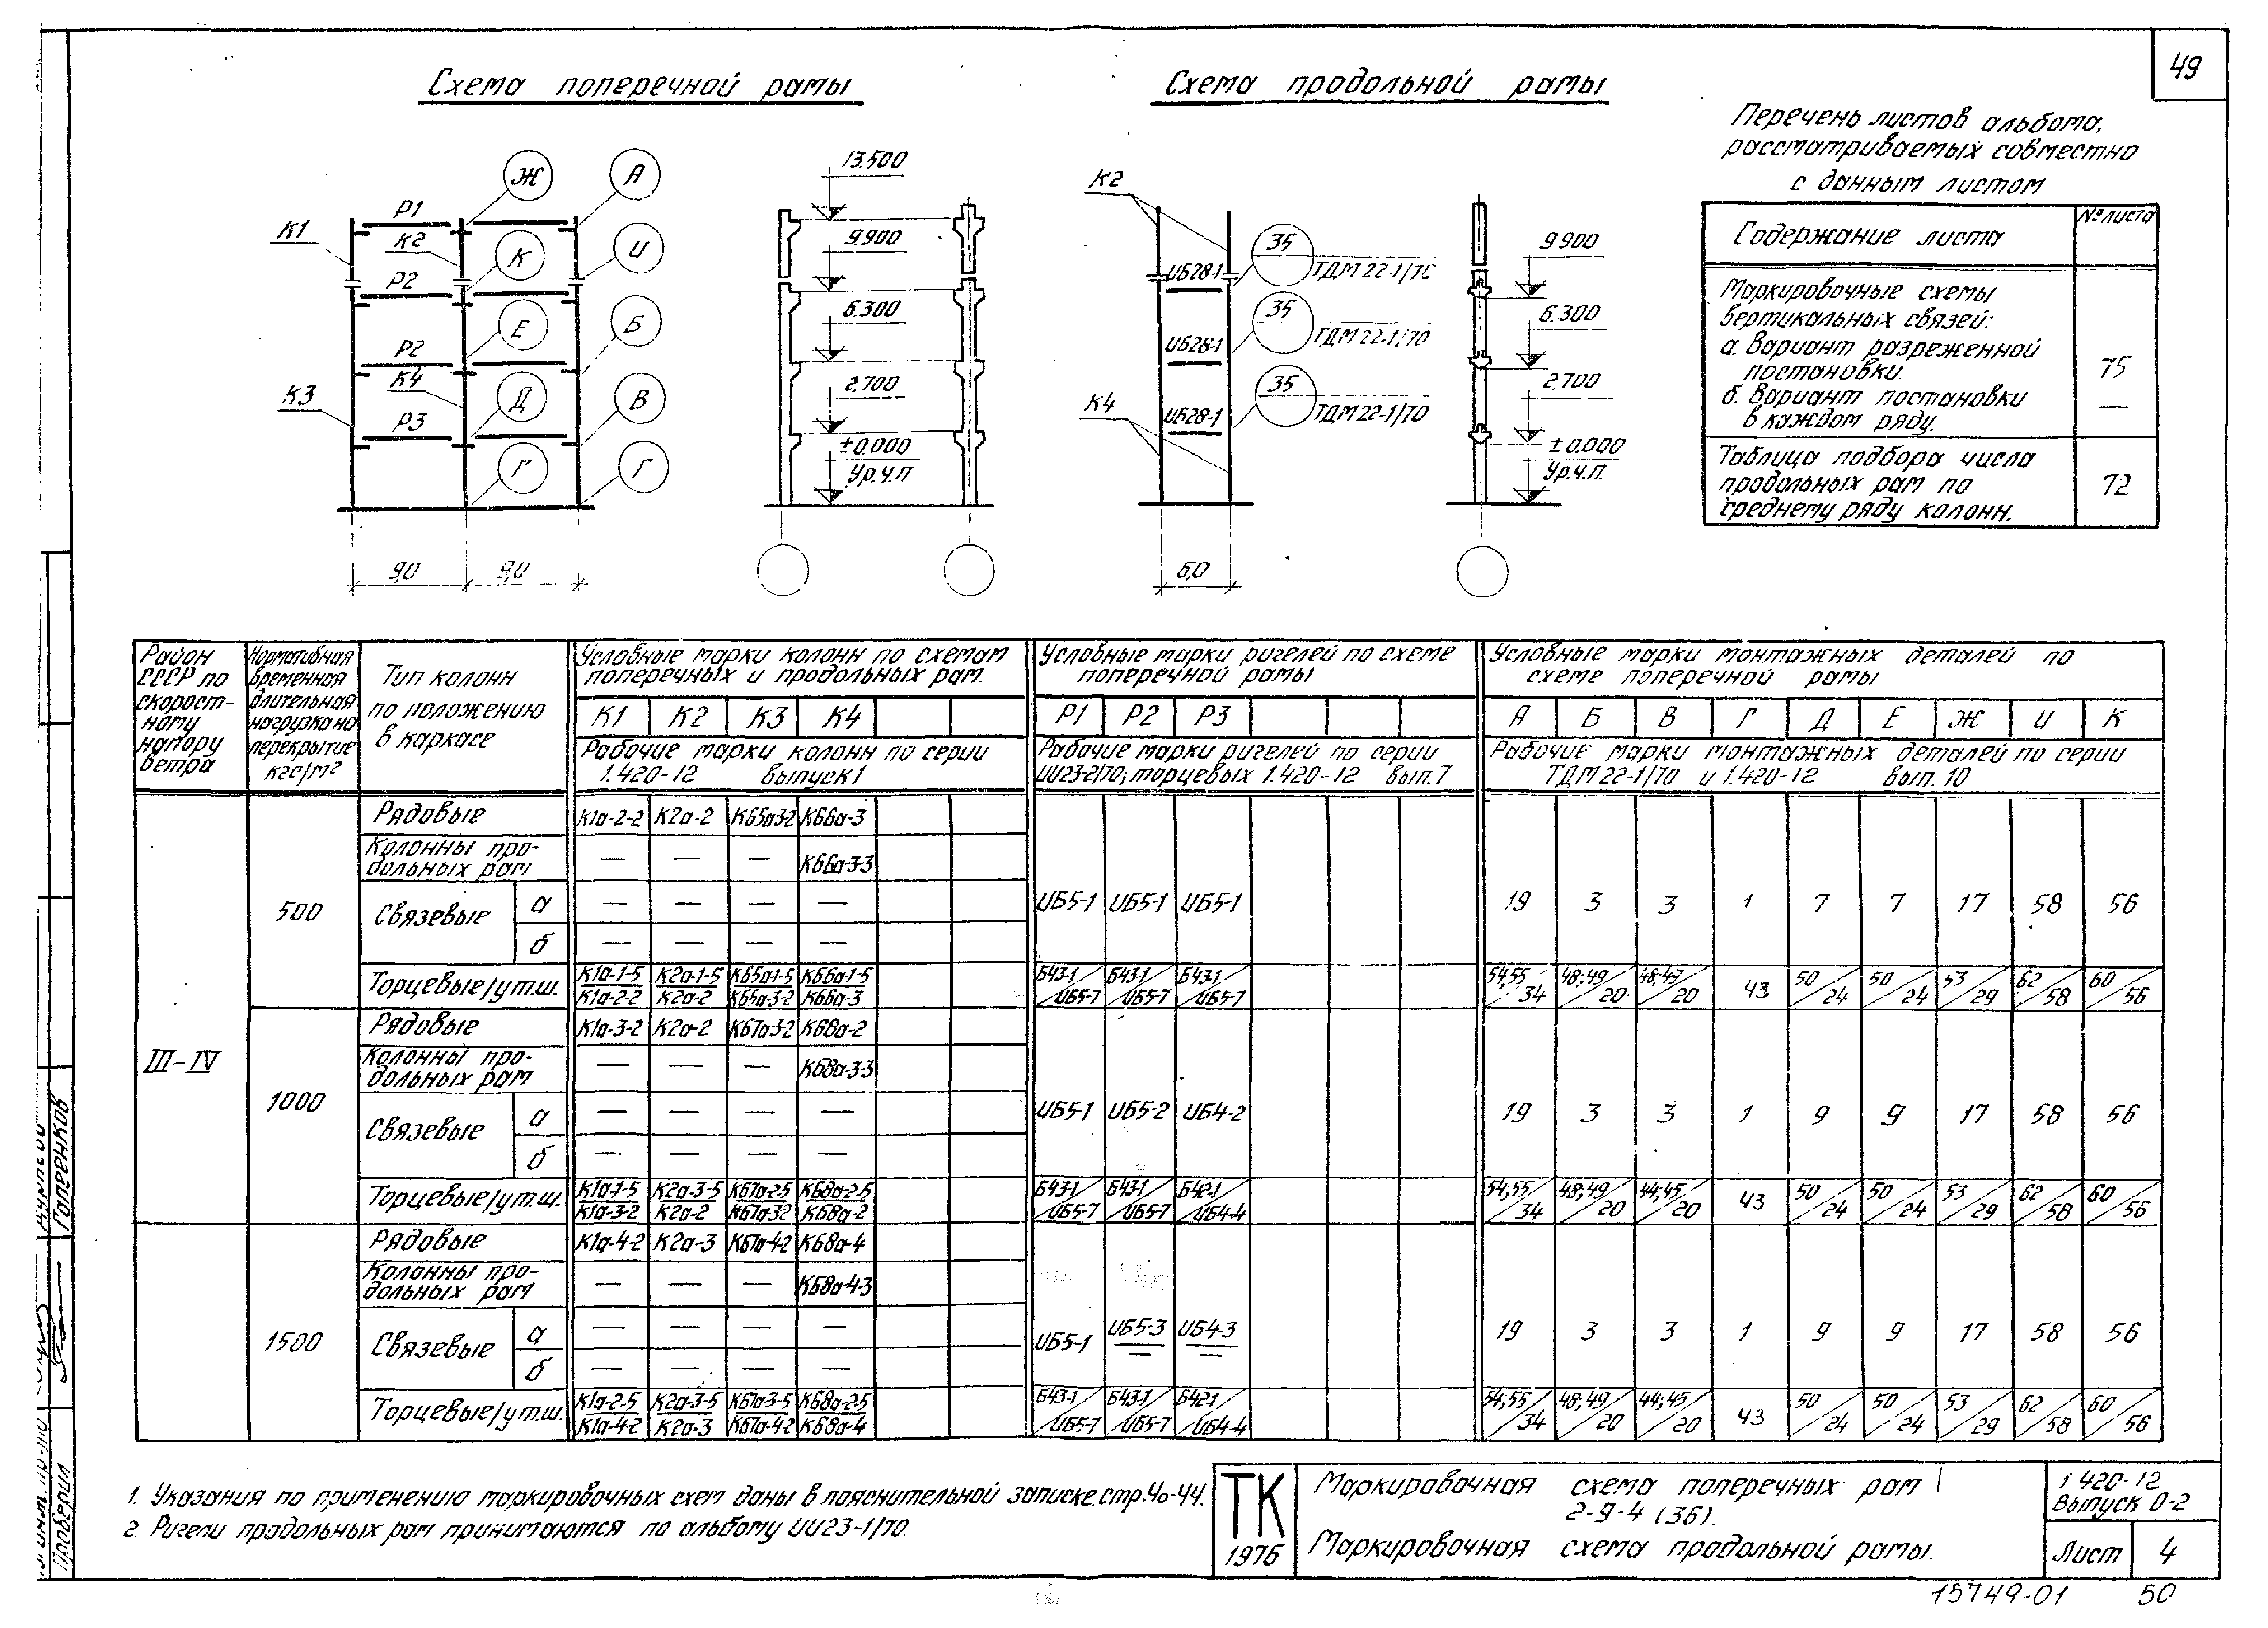 49
Схема поперечной рамы
Схема продольной рамы
Перечень листов альбома,
рассматриваемых совместно
с данным листом
Содержание листа
№ листа
Маркировочные схемы
вертикальных связей:
а. Вариант разреженной
постановки.
75
б. Вариант постановки
в каждом ряду.
—
Таблица подбора числа
продольных рам по
среднему ряду колонн.
72
К1 К2 К3 К4
Р1
Р2
Р2
Р3
Ж А
К И
Е Б
Д В
Г Г
9,0 9,0
13.500
9.900
6.300
2.700
±0.000
Ур.ч.п
К2
К4
ИБ28-1
ИБ28-1
ИБ28-1
35
ТДМ 22-1/70
35
ТДМ 22-1/70
35
ТДМ 22-1/70
6,0
9.900
6.300
2.700
±0.000
Ур.ч.п.
Район СССР по скоростному напору ветра
Нормативная временная длительная нагрузка на перекрытие кгс/м²
Тип колонн по положению в каркасе
Условные марки колонн по схемам
поперечных и продольных рам.
К1 К2 К3 К4
Рабочие марки колонн по серии
1.420-12 выпуск 1
Условные марки ригелей по схеме
поперечной рамы
Р1 Р2 Р3
Рабочие марки ригелей по серии
ИИ23-2/70; торцевых 1.420-12 вып. 7
Условные марки монтажных деталей по
схеме поперечной рамы
А Б В Г Д Е Ж И К
Рабочие марки монтажных деталей по серии
ТДМ 22-1/70 и 1.420-12 вып. 10
III-IV
500
Рядовые К1а-2-2 К2а-2 К65а-3-2 К66а-3
Колонны продольных рам — — — К66а-3-3
Связевые а — — — —
б — — — —
ИБ5-1 ИБ5-1 ИБ5-1
19 3 3 1 7 7 17 58 56
Торцевые/у т.ш. К1а-1-5/К1а-2-2 К2а-1-5/К2а-2 К65а-1-5/К65а-3-2 К66а-1-5/К66а-3
Б43-1/ИБ5-7 Б43-1/ИБ5-7 Б43-1/ИБ5-7
54;55/34 48;49/20 48;49/20 43 50/24 50/24 53/29 62/58 60/56
1000
Рядовые К1а-3-2 К2а-2 К67а-3-2 К68а-2
Колонны продольных рам — — — К68а-3-3
Связевые а — — — —
б — — — —
ИБ5-1 ИБ5-2 ИБ4-2
19 3 3 1 9 9 17 58 56
Торцевые/у т.ш. К1а-1-5/К1а-3-2 К2а-3-5/К2а-2 К67а-2-5/К67а-3-2 К68а-2-5/К68а-2
Б43-1/ИБ5-7 Б43-1/ИБ5-7 Б42-1/ИБ4-4
54;55/34 48;49/20 44;45/20 43 50/24 50/24 53/29 62/58 60/56
1500
Рядовые К1а-4-2 К2а-3 К67а-4-2 К68а-4
Колонны продольных рам — — — К68а-4-3
Связевые а — — — —
б — — — —
ИБ5-1 ИБ5-3 ИБ4-3
19 3 3 1 9 9 17 58 56
Торцевые/у т.ш. К1а-2-5/К1а-4-2 К2а-3-5/К2а-3 К67а-3-5/К67а-4-2 К68а-2-5/К68а-4
Б43-1/ИБ5-7 Б43-1/ИБ5-7 Б42-1/ИБ4-4
54;55/34 48;49/20 44;45/20 43 50/24 50/24 53/29 62/58 60/56
1. Указания по применению маркировочных схем даны в пояснительной записке. стр. 40-44.
2. Ригели продольных рам принимаются по альбому ИИ23-1/70.
ТК
1976
Маркировочная схема поперечных рам
2-9-4 (36).
Маркировочная схема продольной рамы.
1.420-12
Выпуск 0-2
Лист 4
15749-01 50
Проверил
Гапенков